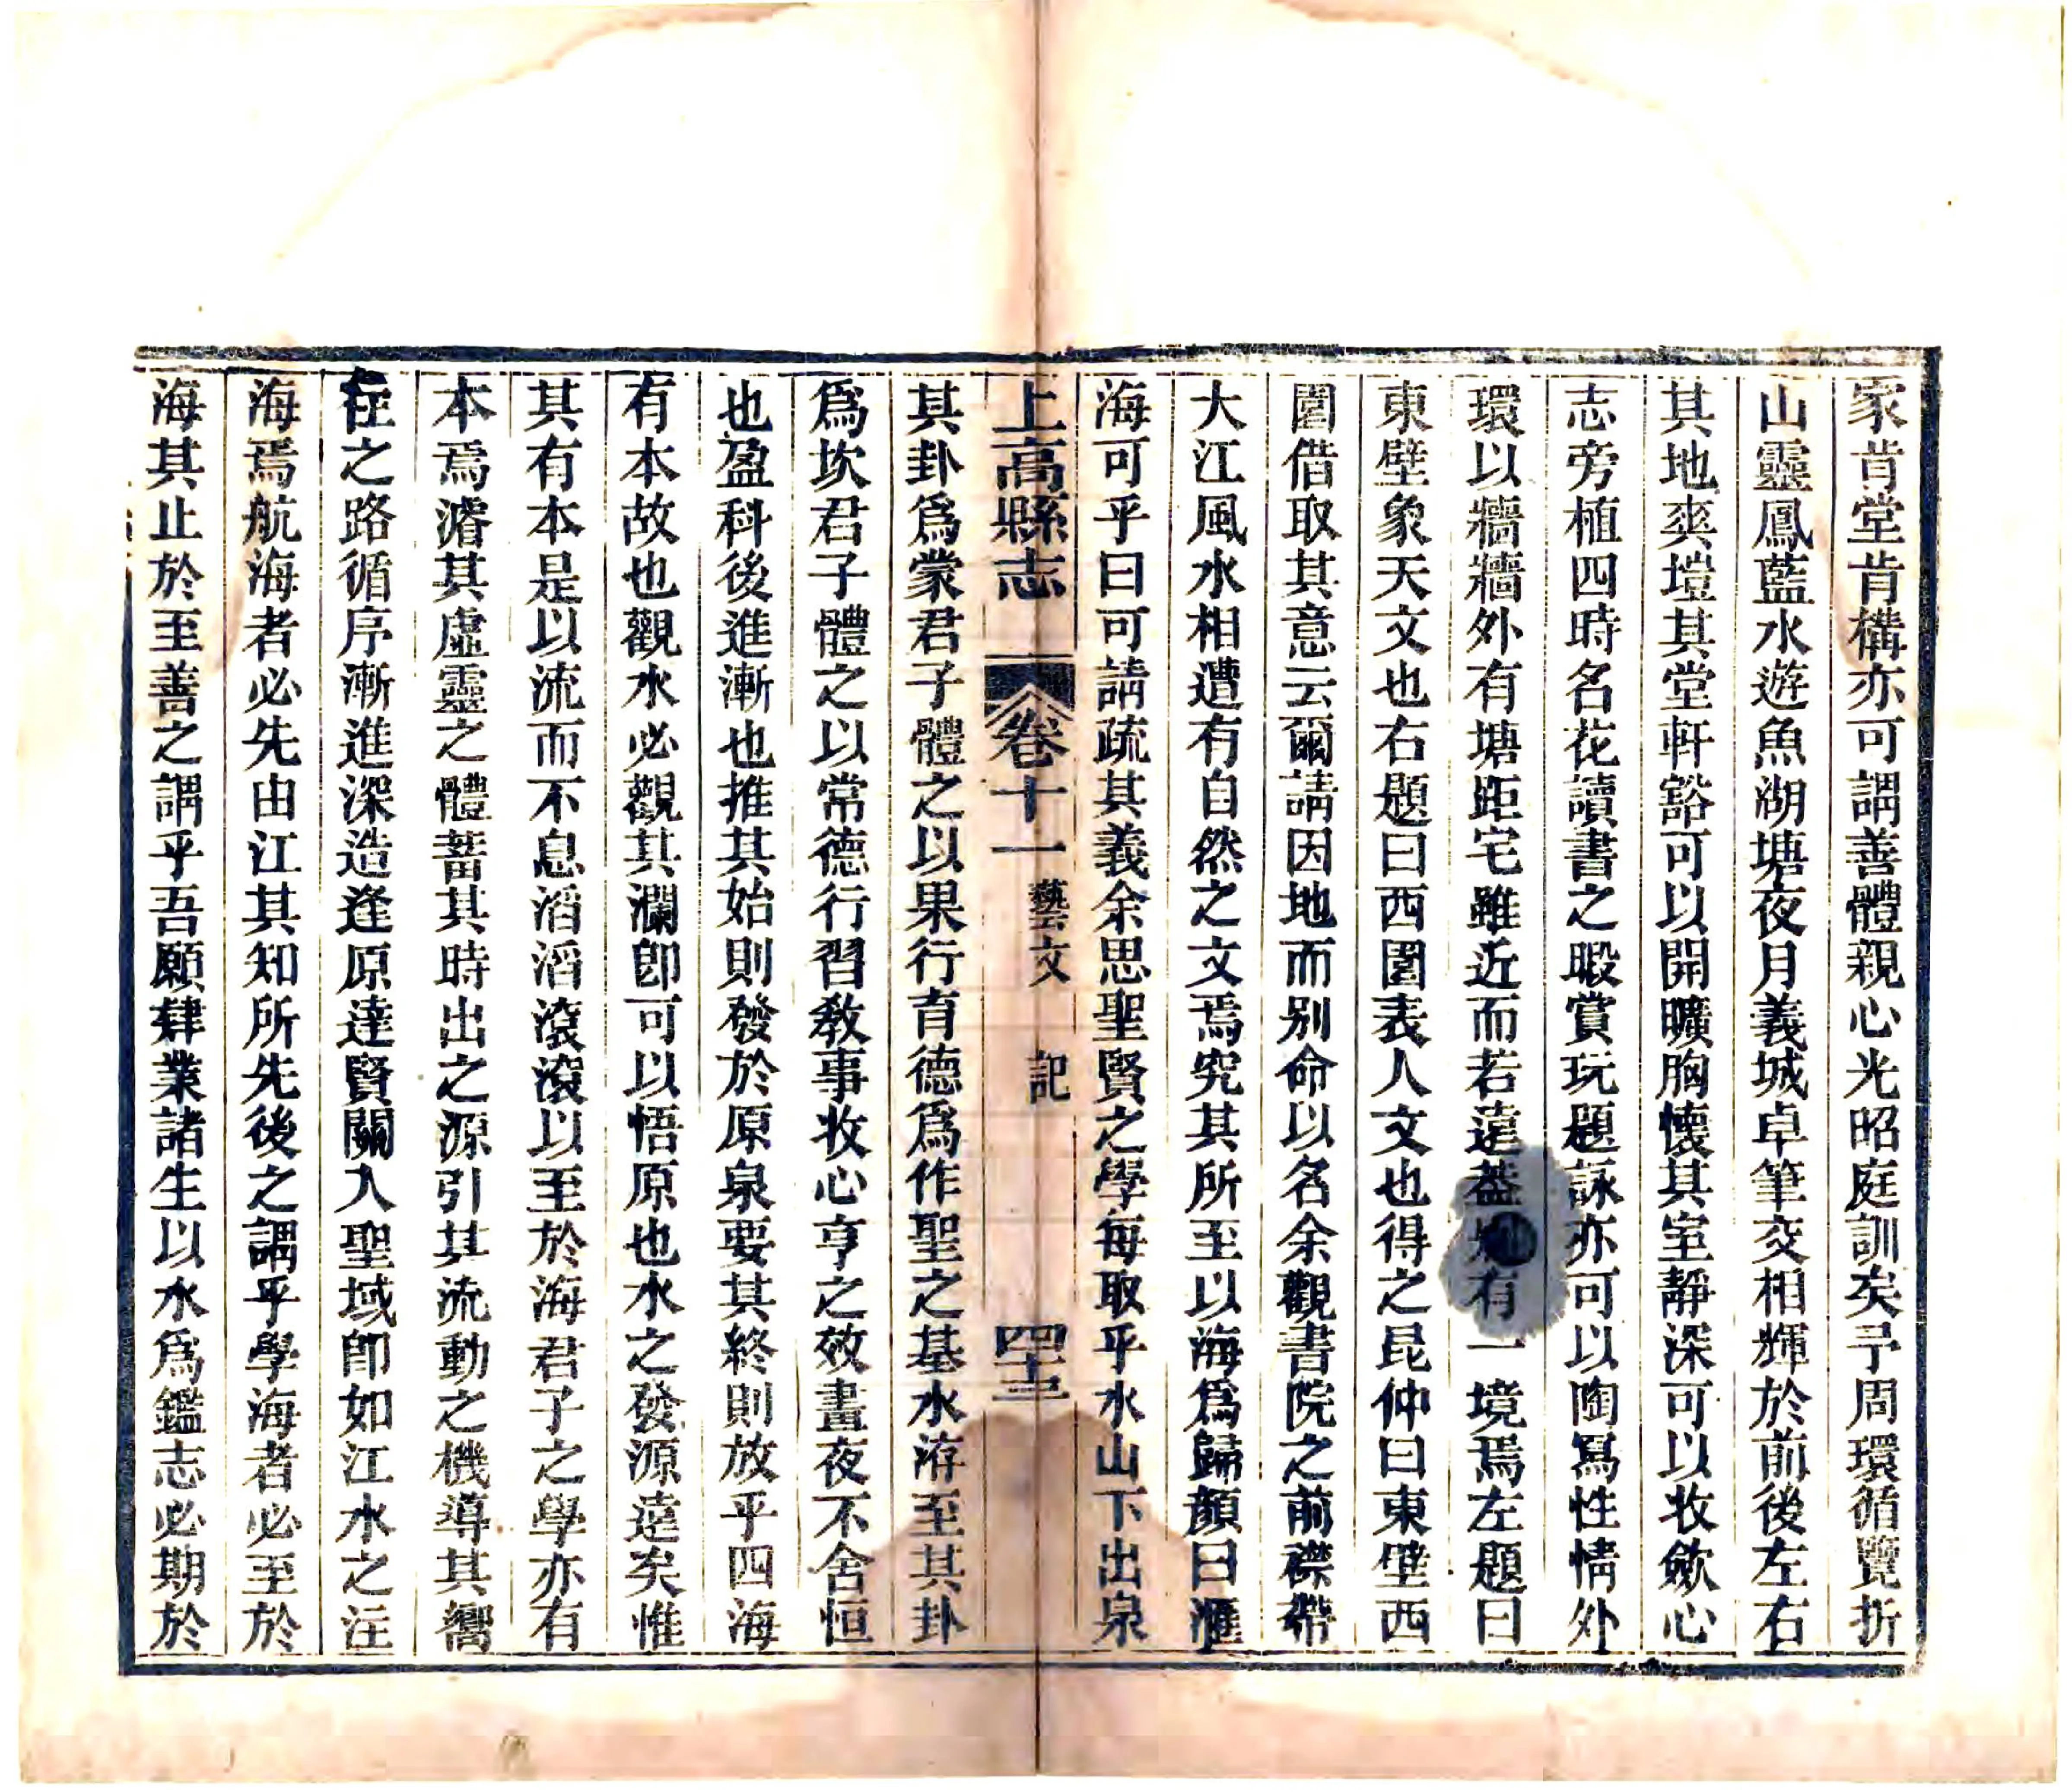 家肯堂肯構亦可謂善體親心光昭庭訓矣予周環循覽折
山靈鳳藍水遊魚湖塘夜月義城卓筆交相輝於前後左右
其地爽塏其堂軒豁可以開曠胸懷其室靜深可以收斂心
志旁植四時名花讀書之暇賞玩題詠亦可以陶冩性情外
環以牆牆外有塘距宅雖近而若遠葢有一境焉左題曰
東壁象天文也右題曰西園表人文也得之昆仲曰東壁西
園借取其意云爾請因地而別命以名余觀書院之前襟帶
大江風水相遭有自然之文焉究其所至以海爲歸顏曰滙
海可乎曰可請疏其義余思聖賢之學每取乎水山下出泉
上高縣志 卷十一 藝文 記 四十三
其卦爲蒙君子體之以果行育德爲作聖之基水洊至其卦
爲坎君子體之以常德行習敎事收心亨之效晝夜不舍恒
也盈科後進漸也推其始則發於原泉要其終則放乎四海
有本故也觀水必觀其瀾卽可以悟原也水之發源遠矣惟
其有本是以流而不息滔滔滾滾以至於海君子之學亦有
本焉濬其虛靈之體蓄其時出之源引其流動之機導其嚮
徃之路循序漸進深造逢原達賢關入聖域卽如江水之注
海焉航海者必先由江其知所先後之謂乎學海者必至於
海其止於至善之謂乎吾願肄業諸生以水爲鑑志必期於